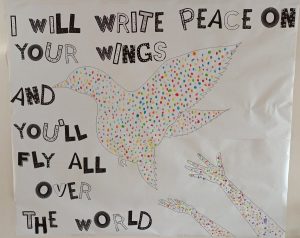 I WILL WRITE PEACE ON
YOUR WINGS
AND
YOU'LL
FLY ALL
OVER
THE WORLD